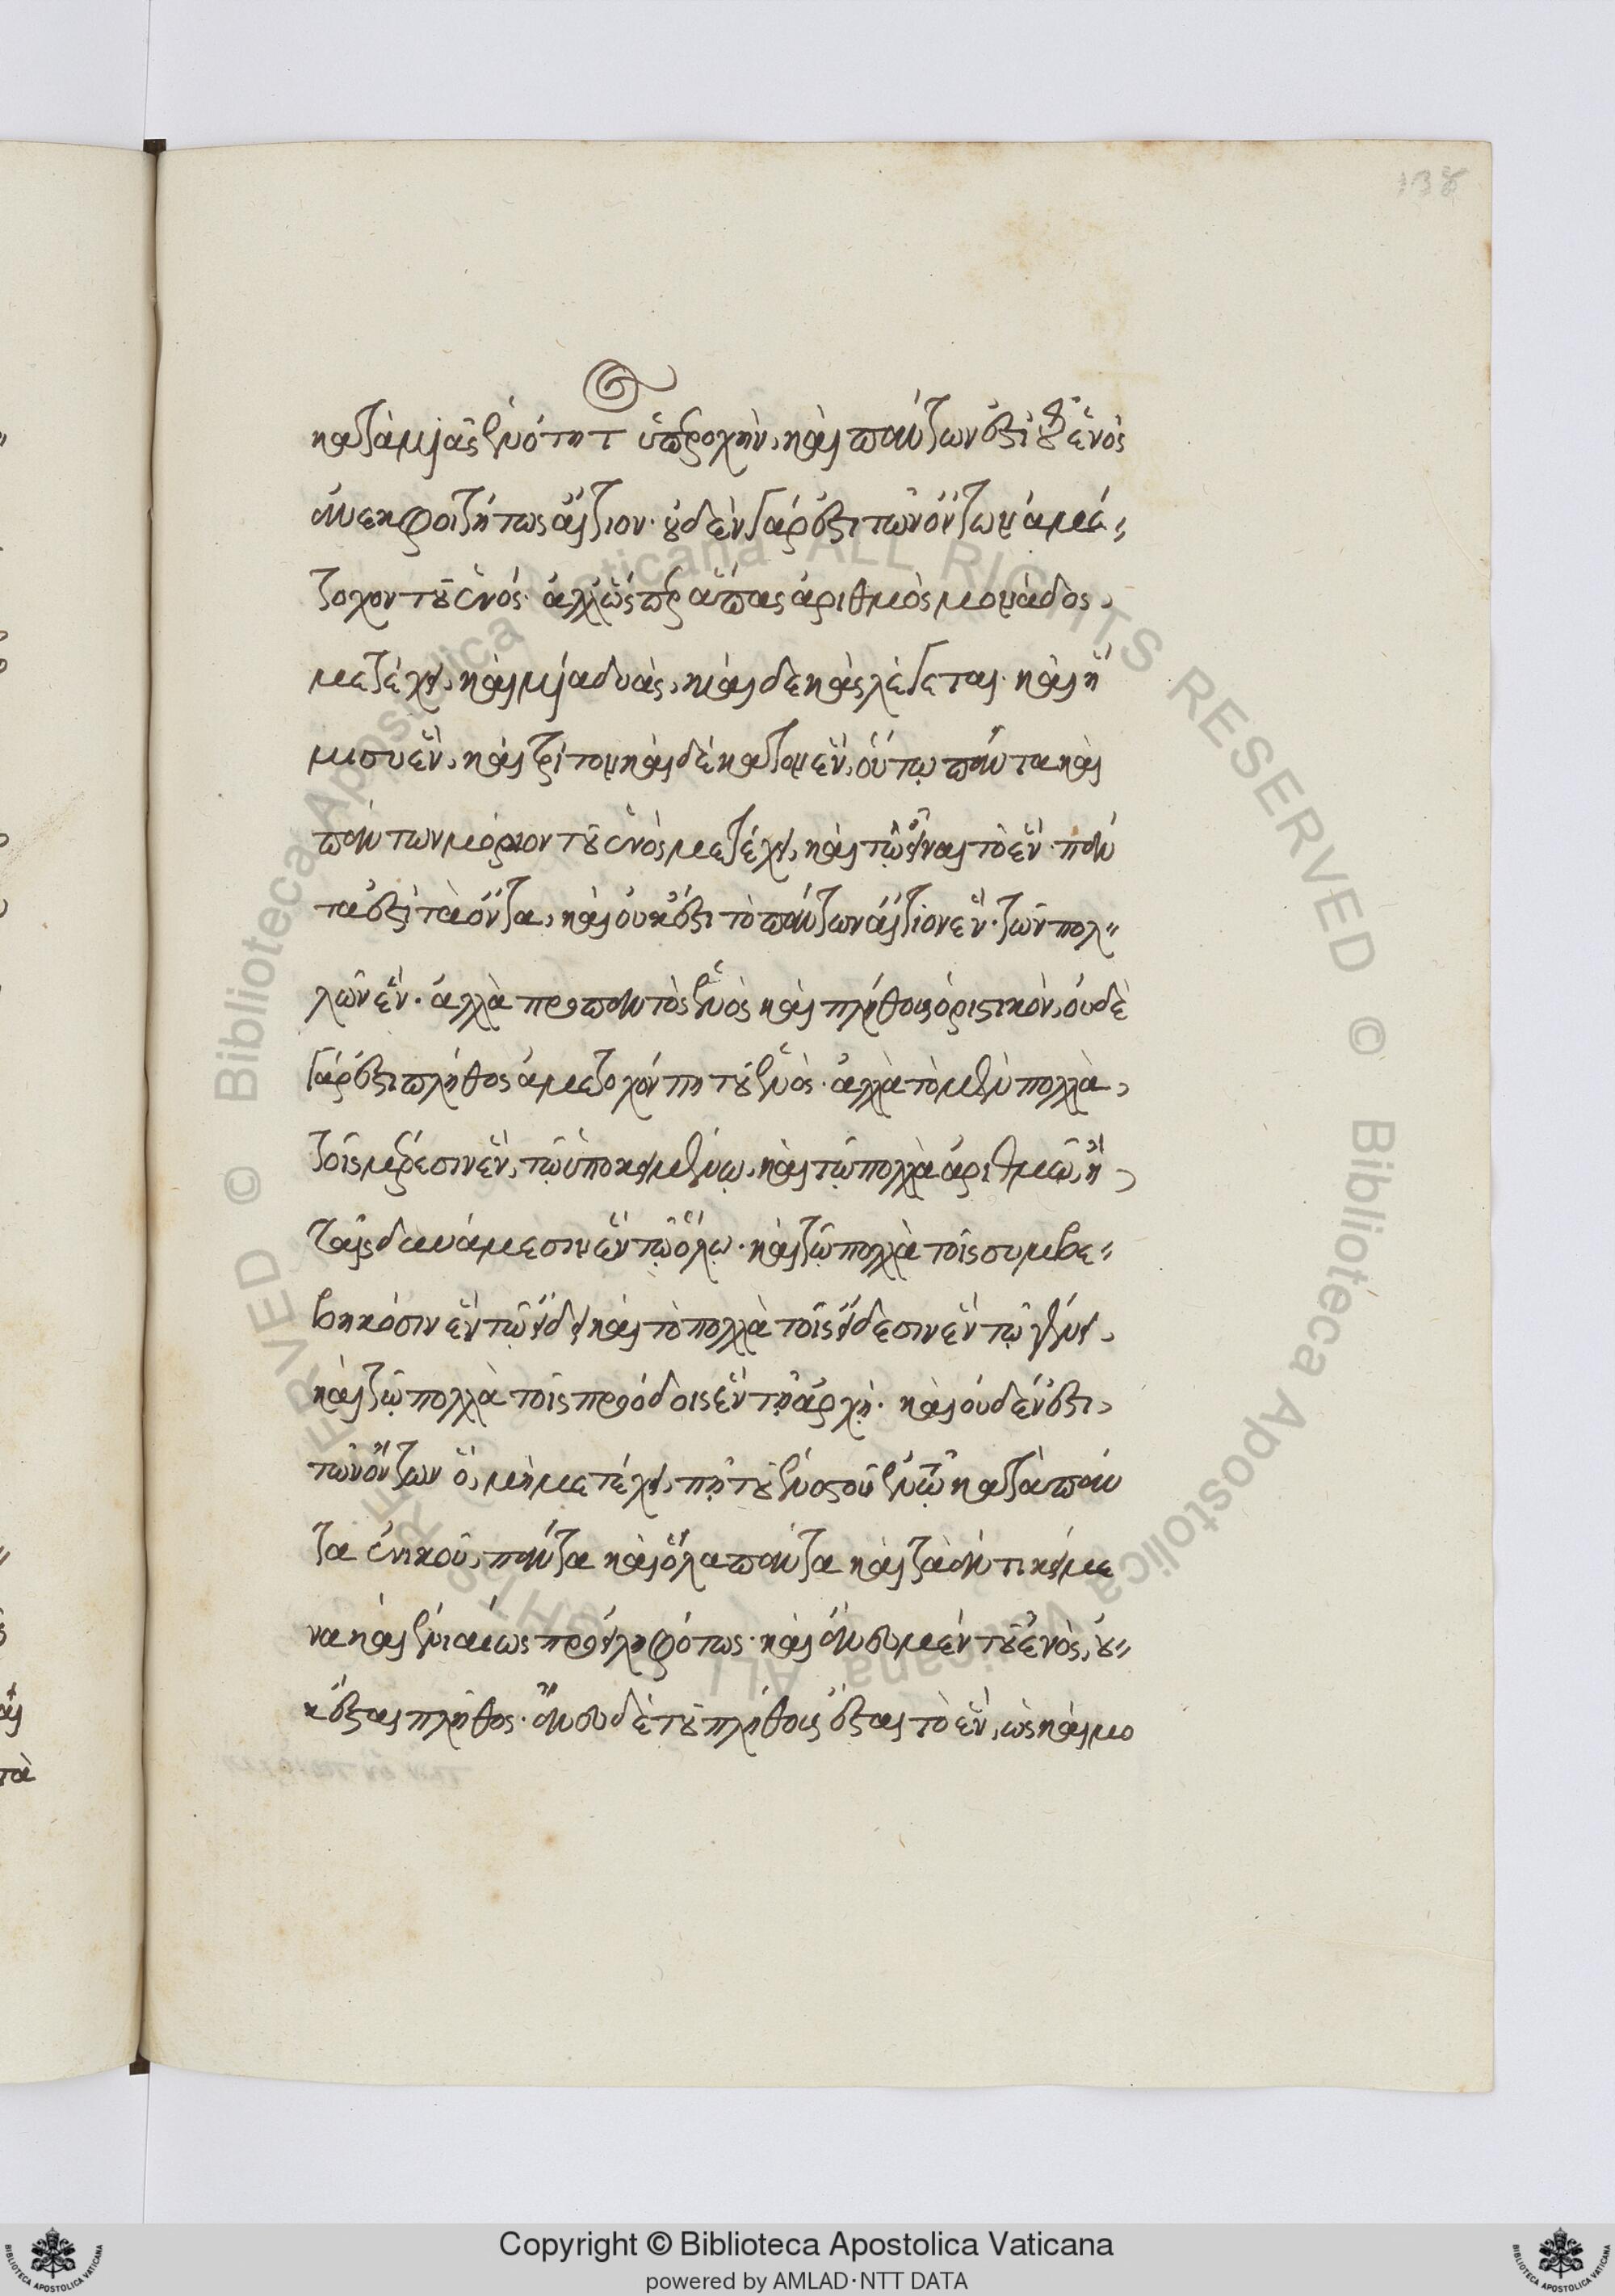 138
κατὰ μιᾶς ἑνότητ ὑπεροχὴν, καὶ πάντων ἐστὶ τὸ ἑνὸς
ἀνεκφοιτήτως αἴτιον· οὐδὲν γάρ ἐστι τῶν ὄντων ἀμέ-
τοχον τοῦ ἑνός· ἀλλ' ὥσπερ ἅπας ἀριθμὸς μονάδος,
μετέχει, καὶ μία δυὰς, καὶ δεκὰς λέγεται· καὶ ἥ
μισυ ἓν, καὶ τρίτον καὶ δέκατον ἓν, οὕτω πάντα καὶ
πάντων μόριον τοῦ ἑνὸς μετέχει, καὶ τῷ εἶναι τὸ ἓν· πάν
τα ἐστὶ τὰ ὄντα, καὶ οὐκ ἔστι τὸ πάντων αἴτιον ἓν· τῶν πολ-
λῶν ἓν· ἀλλὰ πρὸ παντὸς ἑνὸς καὶ πλήθους ὁριστικὸν, οὐδὲ
γάρ ἐστι πλῆθος ἀμετοχόν πη τοῦ ἑνὸς· ἀλλὰ τὸ μὲν πολλὰ,
τοῖς μέρεσιν ἓν, τῷ ὑποκειμένῳ, καὶ τῷ πολλὰ ἀριθμῷ, ἢ
ταῖς δυνάμεσιν ἓν τῷ ὅλῳ· καὶ τῷ πολλὰ τοῖς συμβε-
βηκόσιν ἓν τῷ εἴδει καὶ τὸ πολλὰ τοῖς εἴδεσιν ἓν τῷ γένει,
καὶ τῷ πολλὰ τοῖς προόδοις ἓν τῇ ἀρχῇ· καὶ οὐδέν ἐστι,
τῶν ὄντων ὃ, μὴ μετέχει, πῃ τοῦ ἑνὸς οὗ ἑνῷ κατὰ πάν
τα ἑνικοῦ, πάντα καὶ ὅλα πάντα καὶ τὰ ἀντικείμε
να καὶ ἑνιαίως προειληφότως· καὶ ἄνευ μὲν τοῦ ἑνὸς, οὐ-
κ ἔσται πλῆθος· ἄνευ δὲ τοῦ πλήθους ἔσται τὸ ἓν, ὡς καὶ μο
Copyright © Biblioteca Apostolica Vaticana
powered by AMLAD·NTT DATA